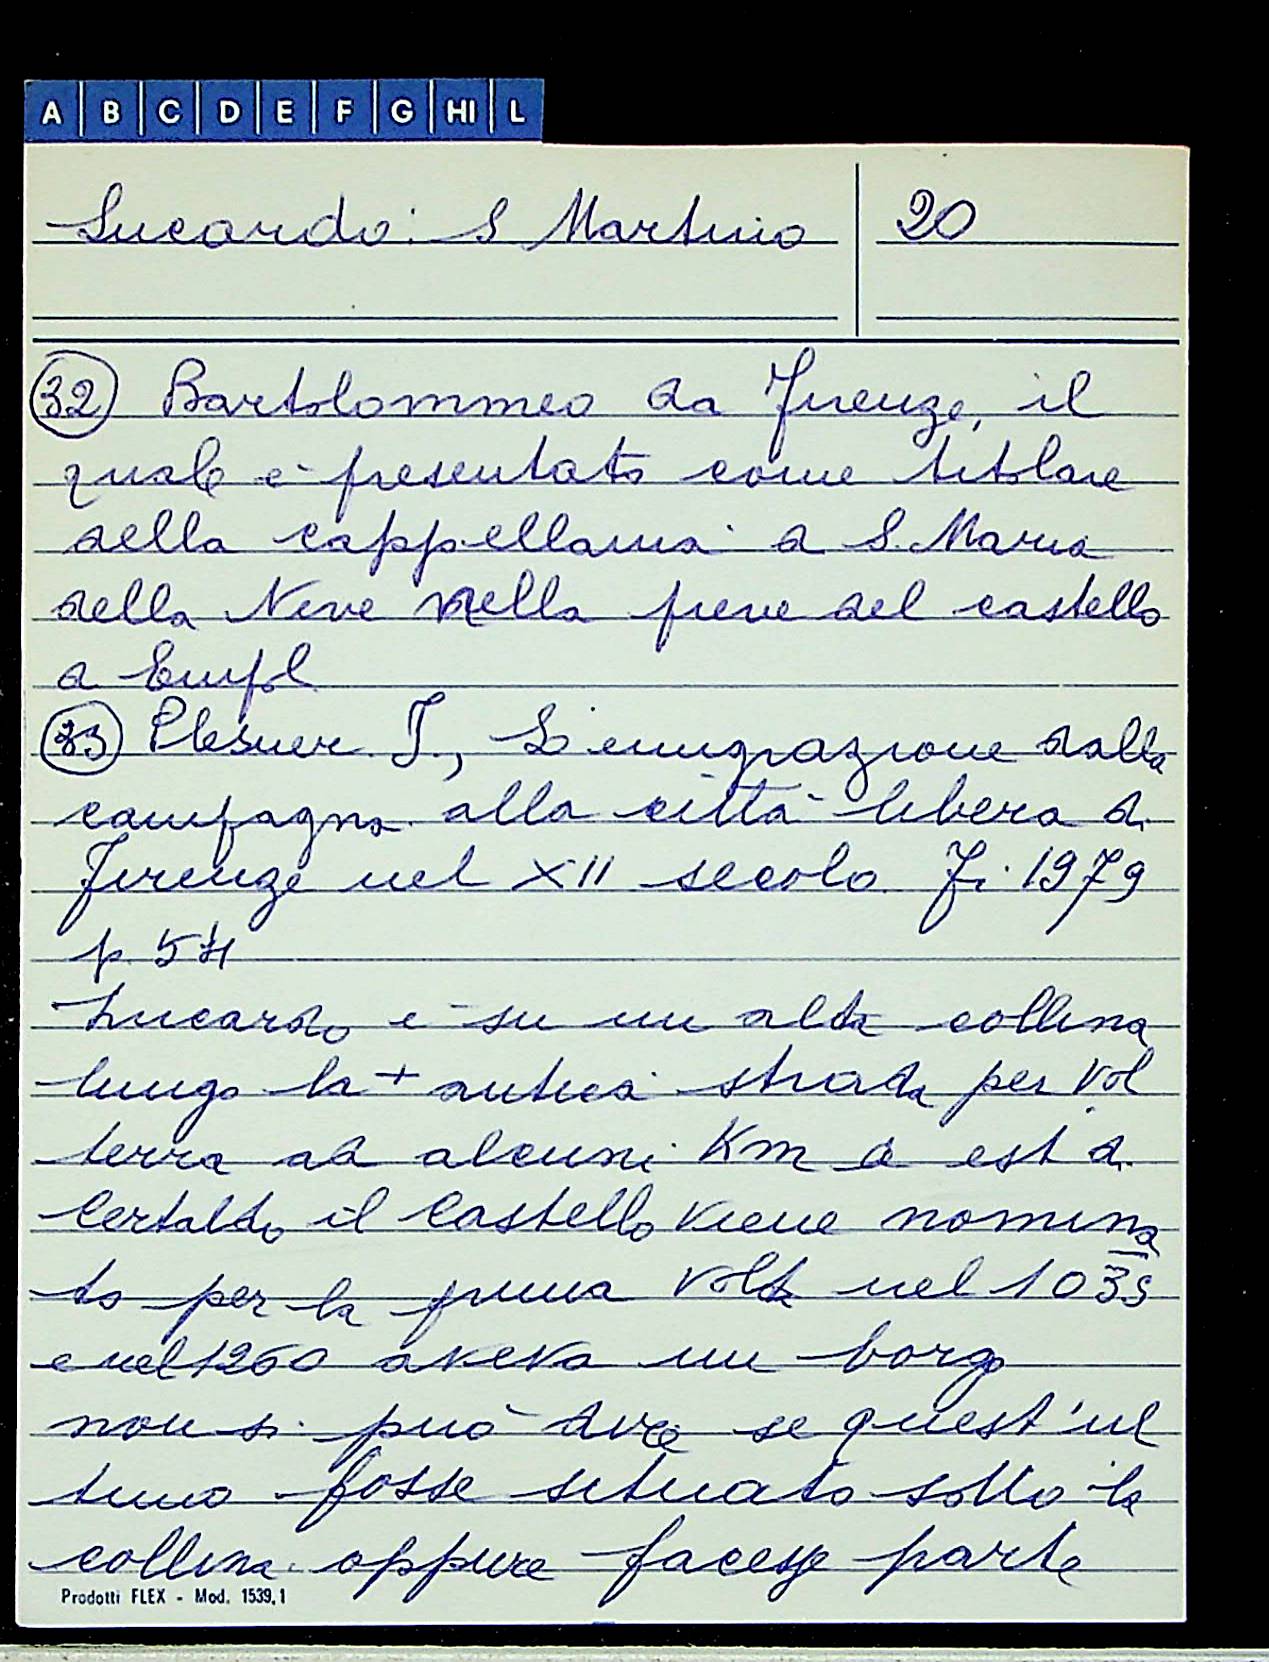 A B C D E F G HI L
Lucardo: S Martino 20
32 Bartolommeo da Firenze, il
quale è presentato come titolare
della cappellania a S. Maria
della Neve nella pieve del castello
a Empl
33 Plesner J., L'emigrazione dalla
campagna alla città libera di
Firenze nel XII secolo Fi. 1979
p. 54
Lucardo è su un alta collina
lungo la + antica strada per Vol
terra ad alcuni Km a est di
Certaldo il Castello viene nomina
to per la prima volta nel 1035
e nel 1260 aveva un borgo
non si può dire se quest'ul
timo fosse situato sotto la
collina oppure facesse parte
Prodotti FLEX - Mod. 1539,1